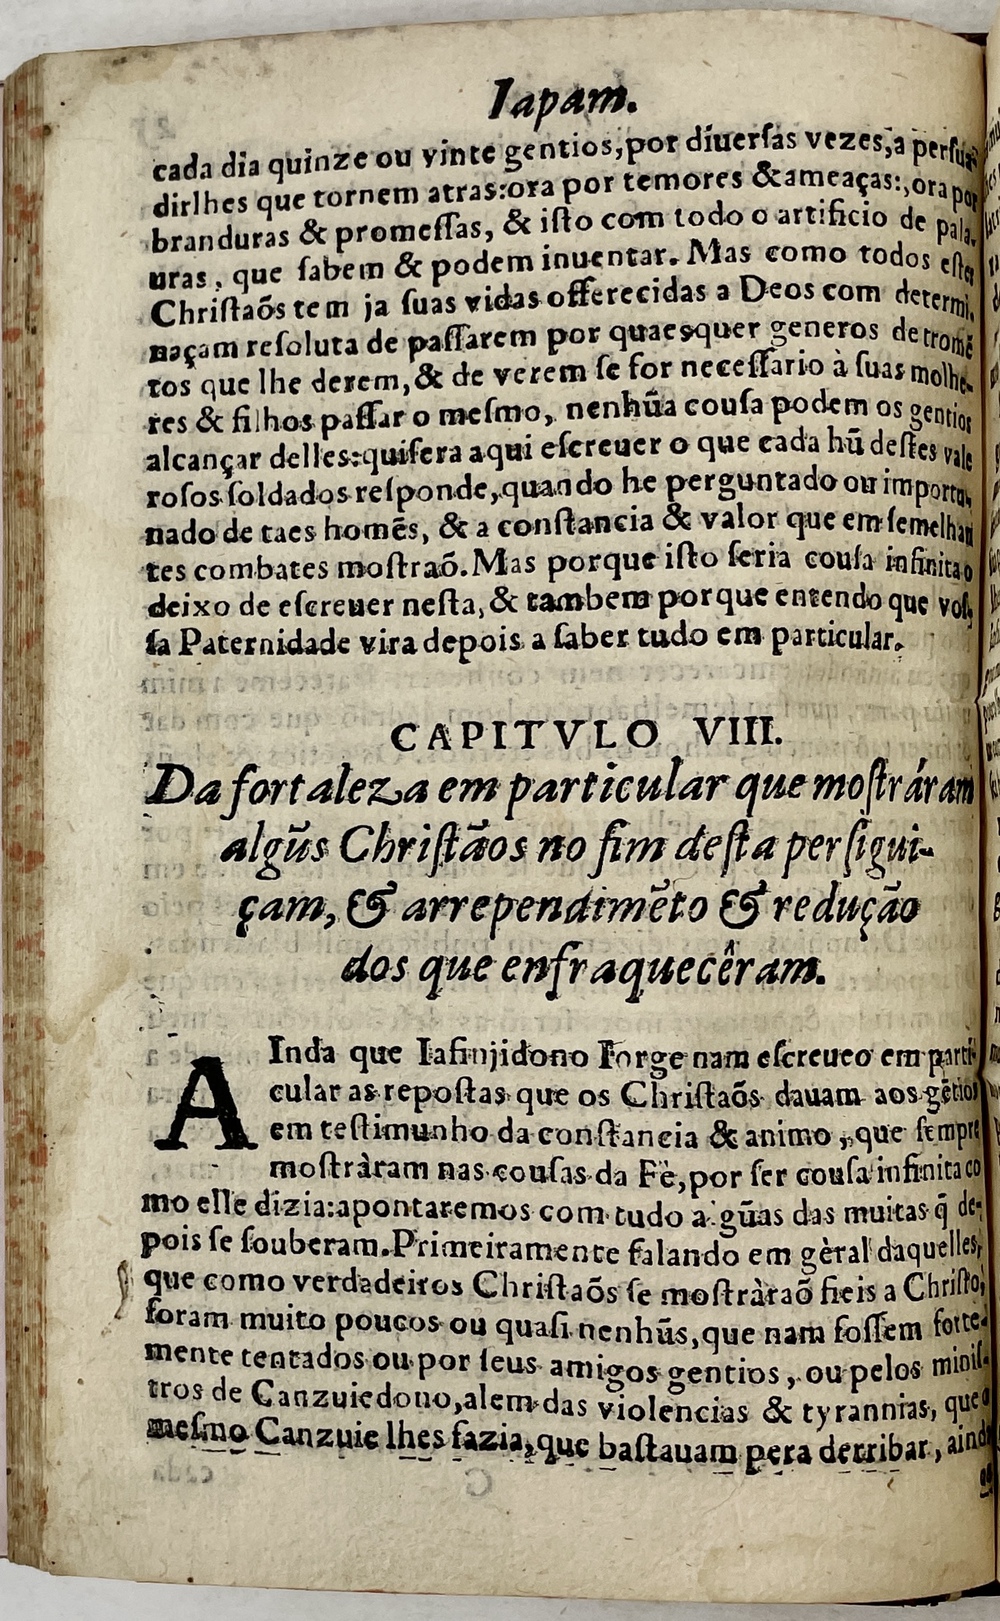 Iapam.
cada dia quinze ou vinte gentios, por diuerſas vezes, a perſua-
dirlhes que tornem atras: ora por temores & ameaças:, ora por
branduras & promeſſas, & iſto com todo o artificio de pala-
uras, que ſabem & podem inuentar. Mas como todos eſtes
Chriſtaõs tem ja ſuas vidas offerecidas a Deos com determi-
naçam reſoluta de paſſarem por quaesquer generos de tromẽ
tos que lhe derem, & de verem ſe for neceſſario à ſuas molhe-
res & filhos paſſar o meſmo, nenhũa couſa podem os gentios
alcançar delles: quiſera aqui eſcreuer o que cada hũ deſtes vale
roſos ſoldados reſponde, quando he perguntado ou importu-
nado de taes homẽs, & a conſtancia & valor que em ſemelhan
tes combates moſtraõ. Mas porque iſto ſeria couſa infinita o
deixo de eſcreuer neſta, & tambem porque entendo que voſ-
ſa Paternidade vira depois a ſaber tudo em particular.
CAPITVLO VIII.
Da fortaleza em particular que moſtráram
algũs Chriſtãos no fim deſta perſigui-
çam, & arrependimẽto & redução
dos que enfraquecêram.
AInda que Iafinjidono Iorge nam eſcreueo em parti-
cular as repoſtas que os Chriſtaõs dauam aos gẽtios
em teſtimunho da conſtancia & animo, que ſempre
moſtràram nas couſas da Fè, por ſer couſa infinita co
mo elle dizia: apontaremos com tudo a gũas das muitas q̃ de-
pois ſe ſouberam. Primeiramente falando em gèral daquelles,
que como verdadeiros Chriſtaõs ſe moſtràraõ fieis a Chriſto,
foram muito poucos ou quaſi nenhũs, que nam foſſem forte-
mente tentados ou por ſeus amigos gentios, ou pelos miniſ-
tros de Canzuiedono, alem das violencias & tyrannias, que o
meſmo Canzuie lhes fazia, que baſtauam pera derribar, ainda